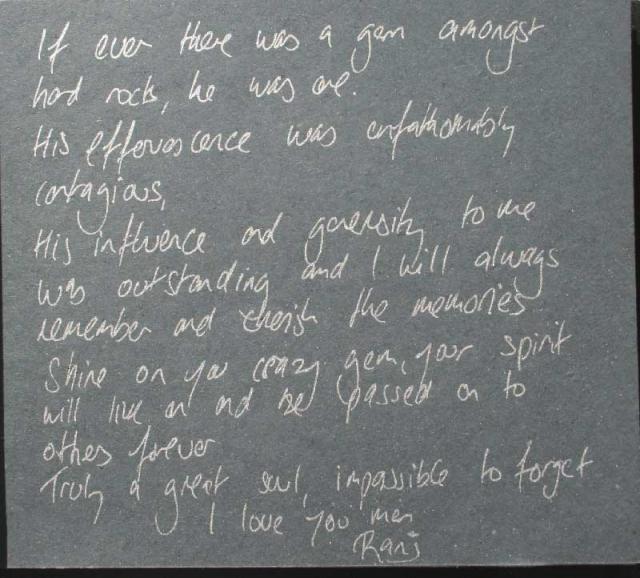 If ever there was a gem amongst
hard rocks, he was one.
His effervescence was unfathomably
contagious,
His influence and generosity to me
was outstanding and I will always
remember and cherish the memories
Shine on you crazy gem, your spirit
will live on and be passed on to
others forever
Truly a great soul, impossible to forget
I love you man
Ranj